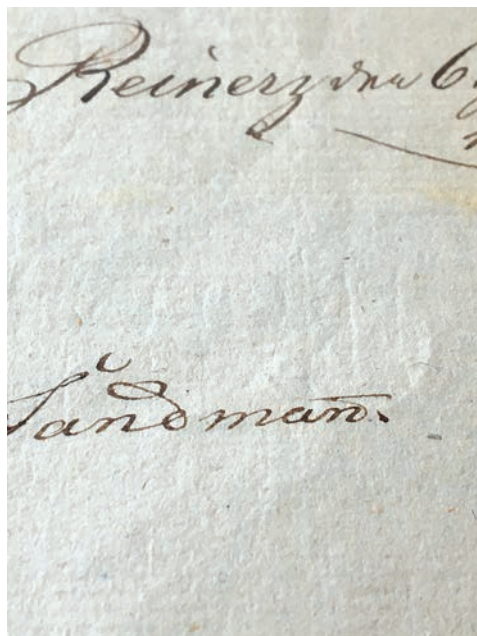 Reinerz den 6
Sandman̅.